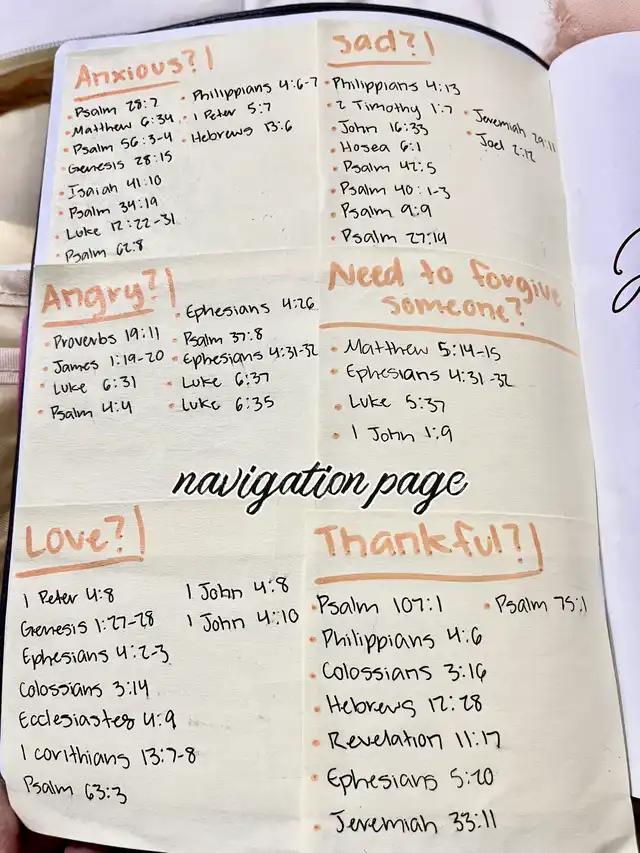 Anxious?
Psalm 28:7
Matthew 6:34
Psalm 56:3-4
Genesis 28:15
Isaiah 41:10
Psalm 34:19
Luke 12:22-31
Psalm 62:8
Philippians 4:6-7
1 Peter 5:7
Hebrews 13:6
Sad?
Philippians 4:13
2 Timothy 1:7
John 16:33
Hosea 6:1
Psalm 42:5
Psalm 40:1-3
Psalm 9:9
Psalm 27:14
Jeremiah 29:11
Joel 2:12
Angry?
Proverbs 19:11
James 1:19-20
Luke 6:31
Psalm 4:4
Ephesians 4:26
Psalm 37:8
Ephesians 4:31-32
Luke 6:37
Luke 6:35
Need to forgive
someone?
Matthew 5:14-15
Ephesians 4:31-32
Luke 5:37
1 John 1:9
navigation page
Love?
1 Peter 4:8
Genesis 1:27-28
Ephesians 4:2-3
Colossians 3:14
Ecclesiastes 4:9
1 corithians 13:7-8
Psalm 63:3
1 John 4:8
1 John 4:10
Thankful?
Psalm 107:1
Philippians 4:6
Colossians 3:16
Hebrews 12:28
Revelation 11:17
Ephesians 5:20
Jeremiah 33:11
Psalm 75:1